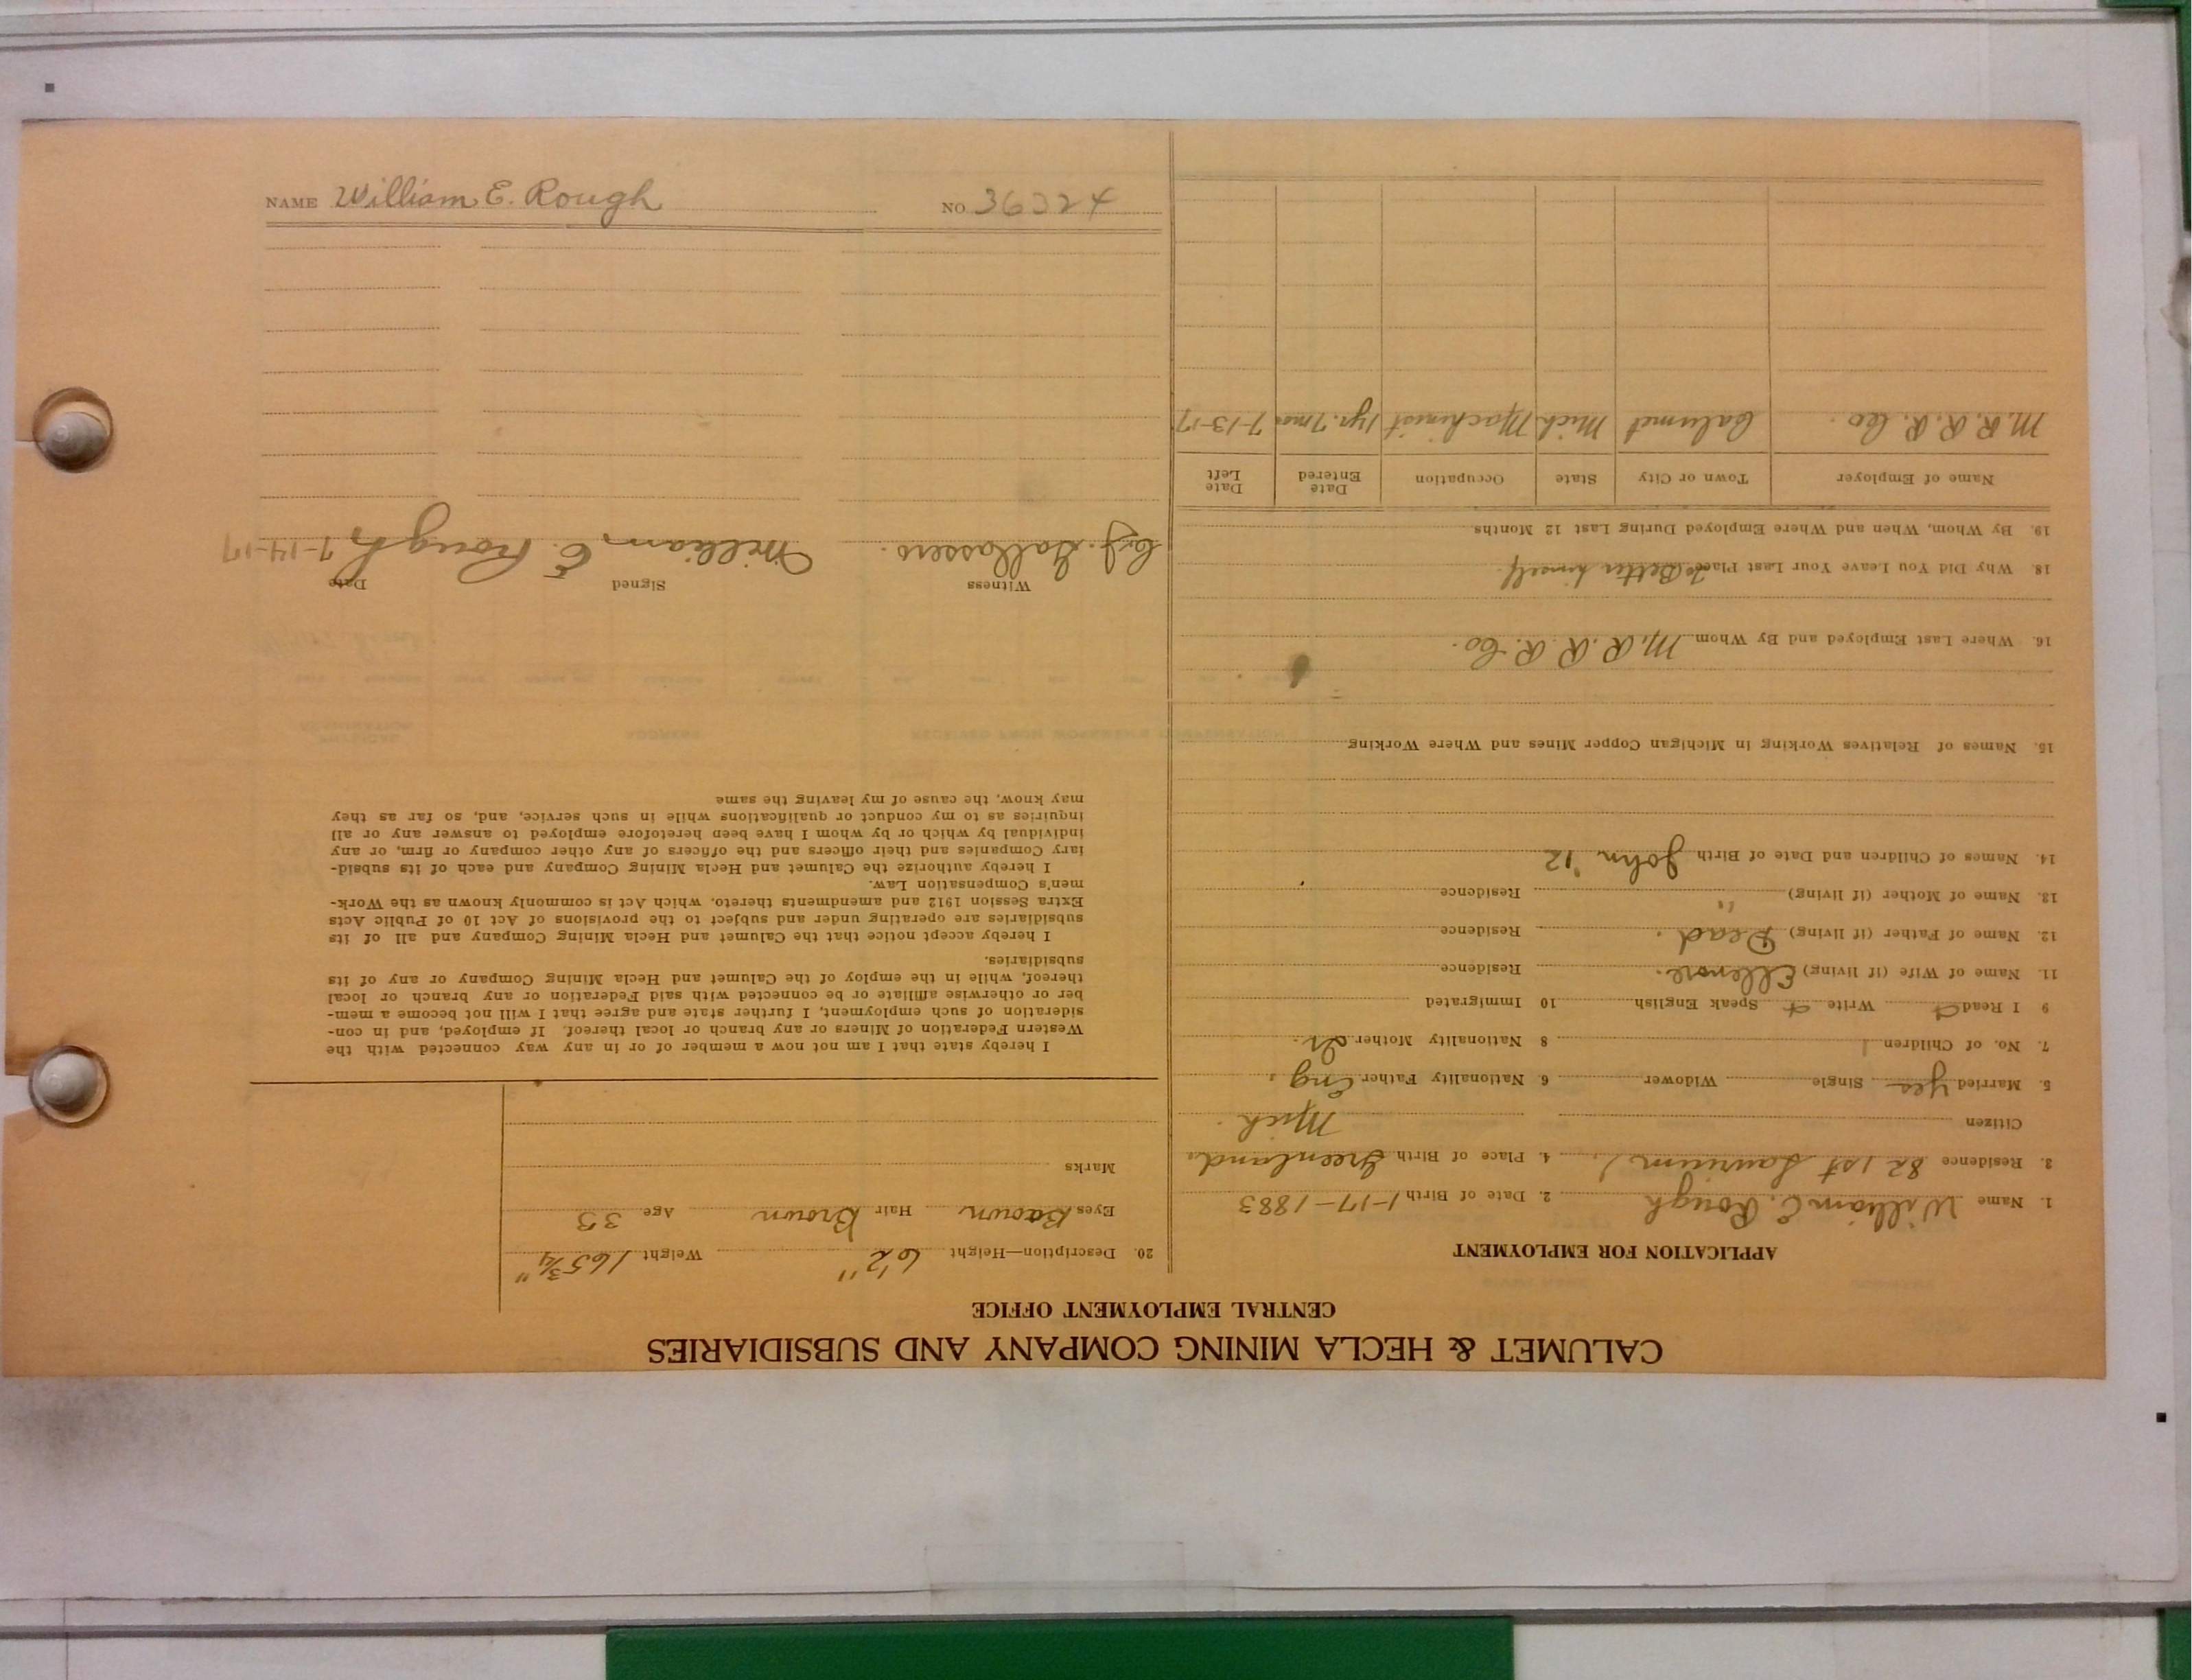 CALUMET & HECLA MINING COMPANY AND SUBSIDIARIES
CENTRAL EMPLOYMENT OFFICE
APPLICATION FOR EMPLOYMENT
1. Name William E. Rough 2. Date of Birth 1-17-1883
3. Residence 82 1st Laurium 4. Place of Birth Greenland
Citizen Mich.
5. Married Yes Single Widower 6. Nationality Father Eng.
7. No. of Children 1 8 Nationality Mother Ir.
9 I Read Write Speak English 10 Immigrated
11. Name of Wife (if living) Ellenore. Residence
12. Name of Father (if living) Dead. Residence
13. Name of Mother (if living) " Residence
14. Names of Children and Date of Birth John '12
15. Names of Relatives Working in Michigan Copper Mines and Where Working
16. Where Last Employed and By Whom M. R. R. R. Co.
18. Why Did You Leave Your Last Place To Better himself.
19. By Whom, When and Where Employed During Last 12 Months
Name of Employer Town or City State Occupation Date Entered Date Left
M. R. R. R. Co. Calumet Mich Machinist 1yr. 7mos 7-13-17
20. Description—Height 6'2" Weight 165¾"
Eyes Baown Hair Brown Age 33
Marks
I hereby state that I am not now a member of or in any way connected with the
Western Federation of Miners or any branch or local thereof. If employed, and in con-
sideration of such employment, I further state and agree that I will not become a mem-
ber or otherwise affiliate or be connected with said Federation or any branch or local
thereof, while in the employ of the Calumet and Hecla Mining Company or any of its
subsidiaries.
I hereby accept notice that the Calumet and Hecla Mining Company and all of its
subsidiaries are operating under and subject to the provisions of Act 10 of Public Acts
Extra Session 1912 and amendments thereto, which Act is commonly known as the Work-
men's Compensation Law.
I hereby authorize the Calumet and Hecla Mining Company and each of its subsid-
iary Companies and their officers and the officers of any other company or firm, or any
individual by which or by whom I have been heretofore employed to answer any or all
inquiries as to my conduct or qualifications while in such service, and, so far as they
may know, the cause of my leaving the same
Witness Signed Date
William E. Rough 7-14-17
NAME William E. Rough NO. 36324